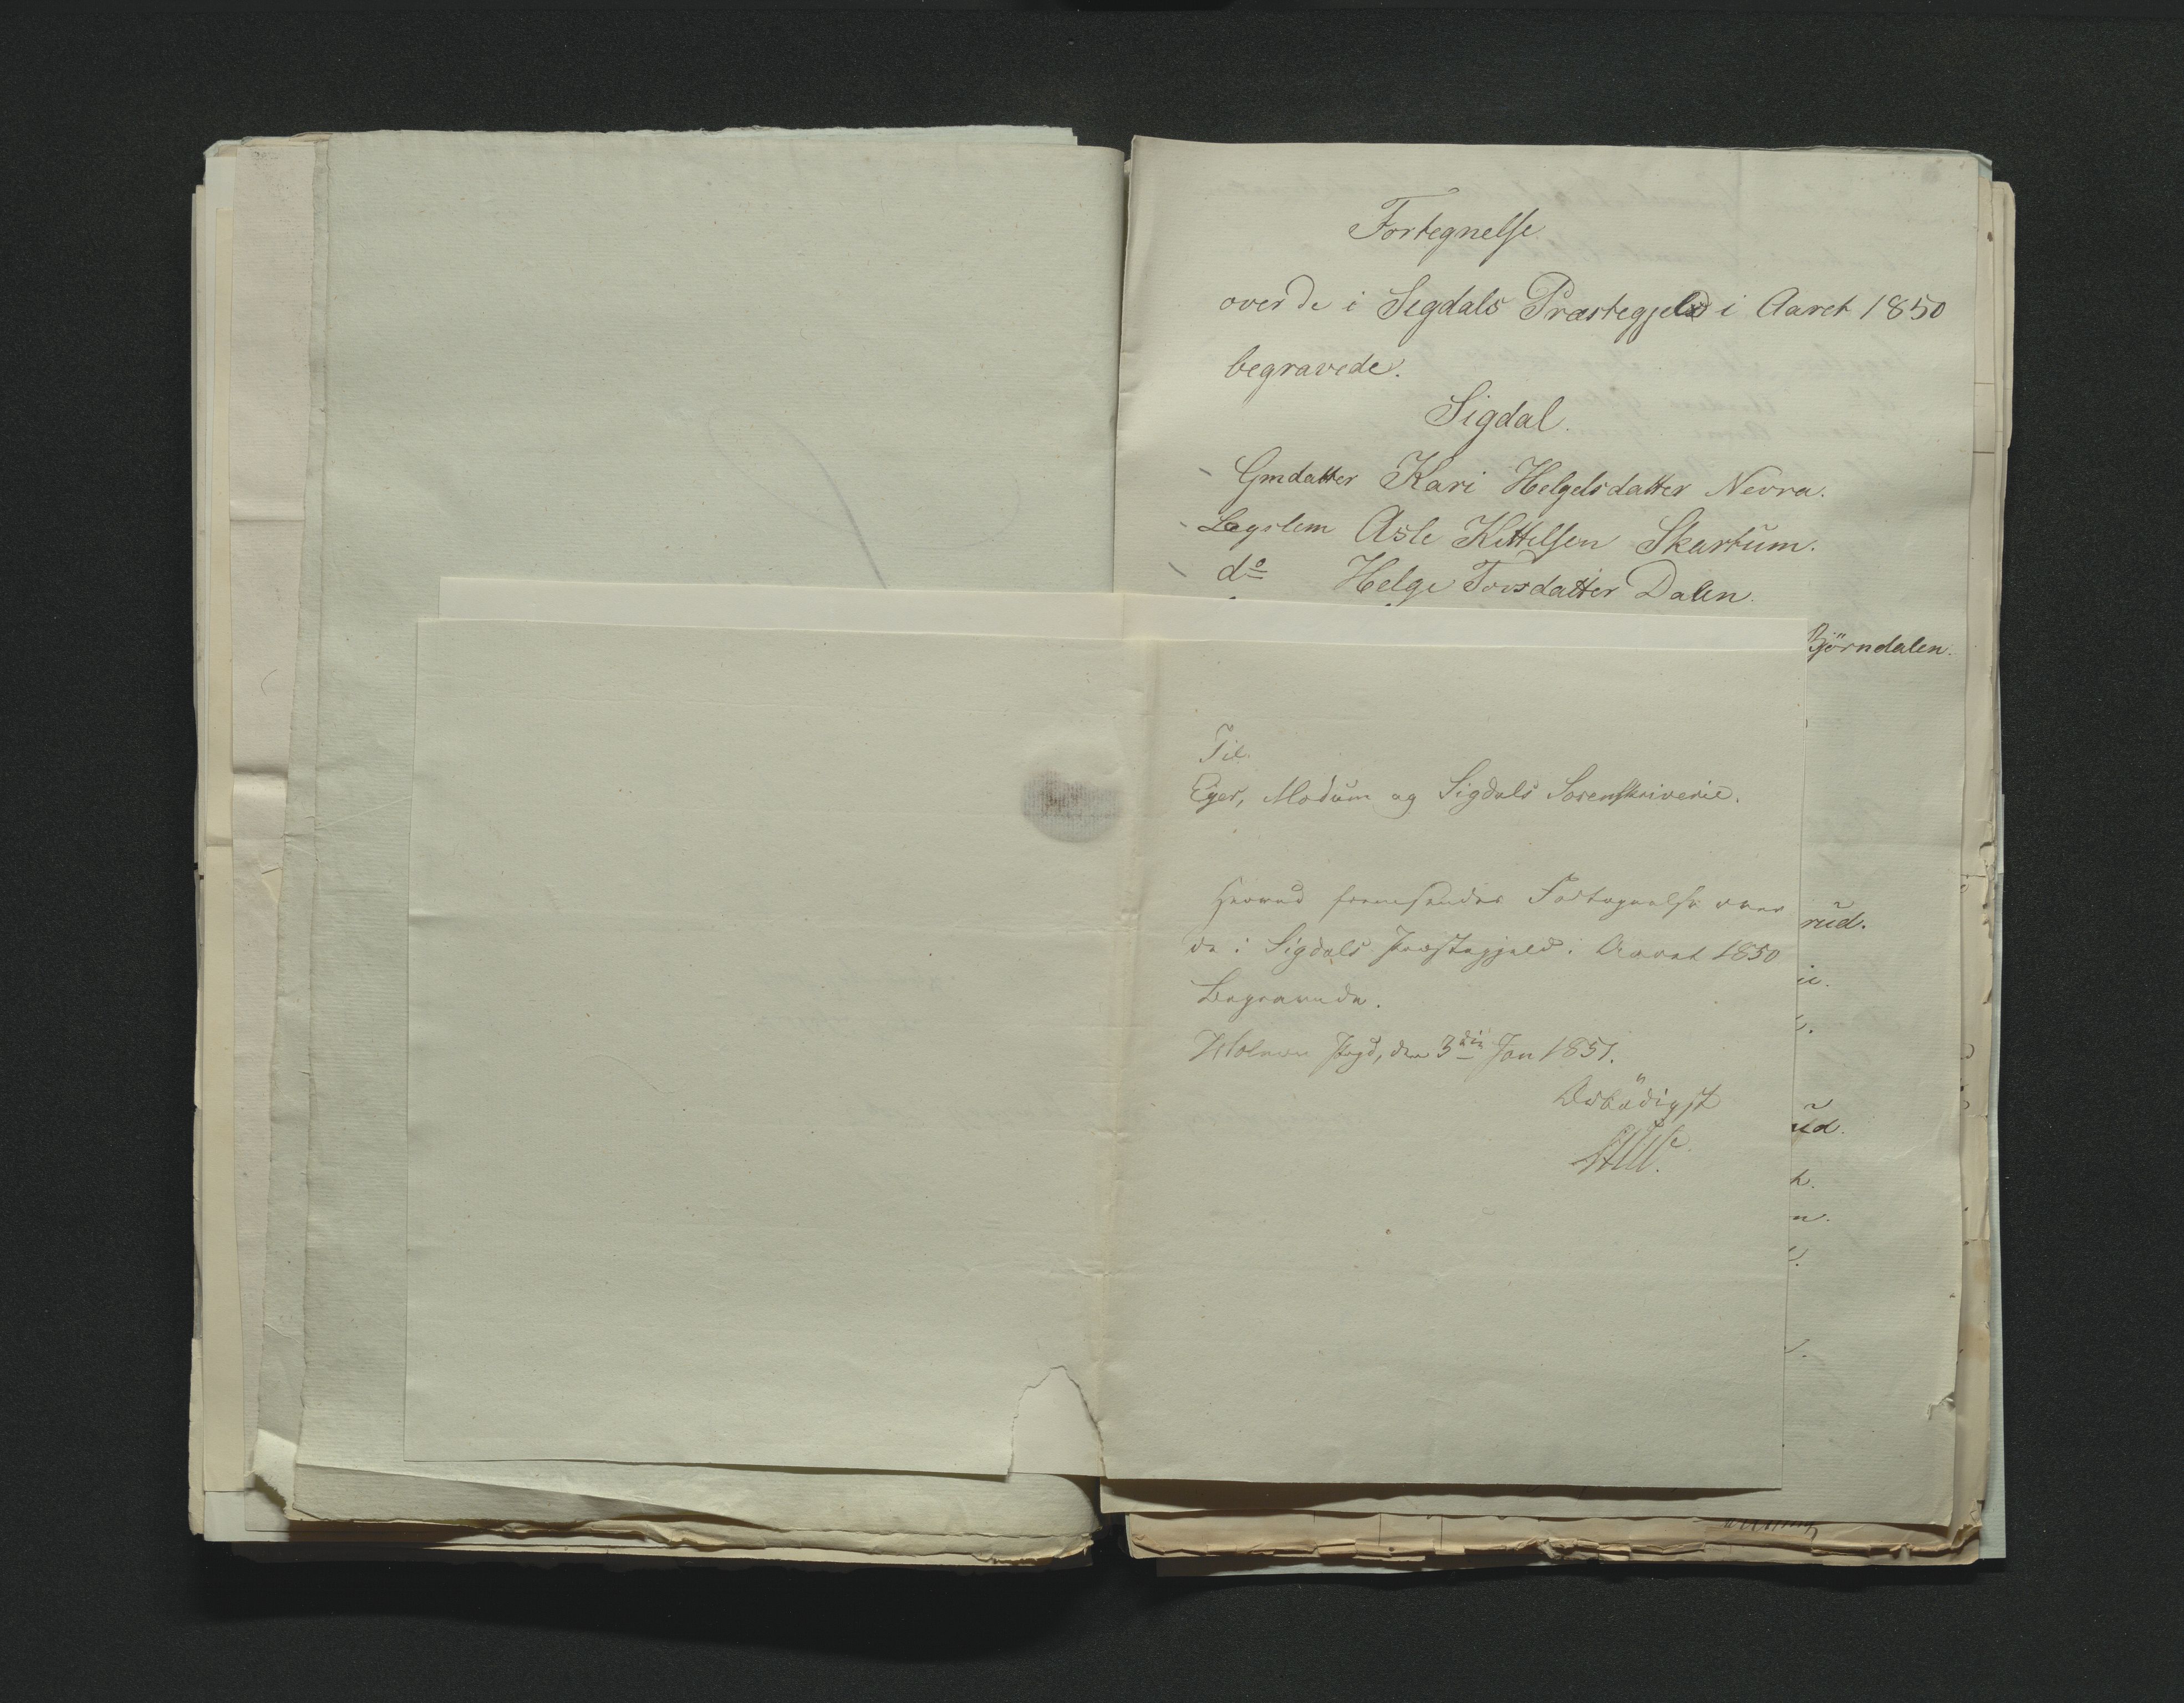 Fortegnelse
over de i Segdals Præstegjeld i Aaret 1850
begravede.
Sigdal.
Gmdatter Kari Helgelsdatter Nevra.
Lægslem Asle Kittelsen Skartum.
do Helge Torsdatter Dalen.
Bjørndalen.
Til
Eger, Modum og Sigdals Sorenskriverie.
Herved fremsendes Fortegnelse over
de i Sigdals Præstegjeld i Aaret 1850
Begravede.
Holmen Pgd, den 3die Jan 1851.
Ærbødigst
rud.
ud.